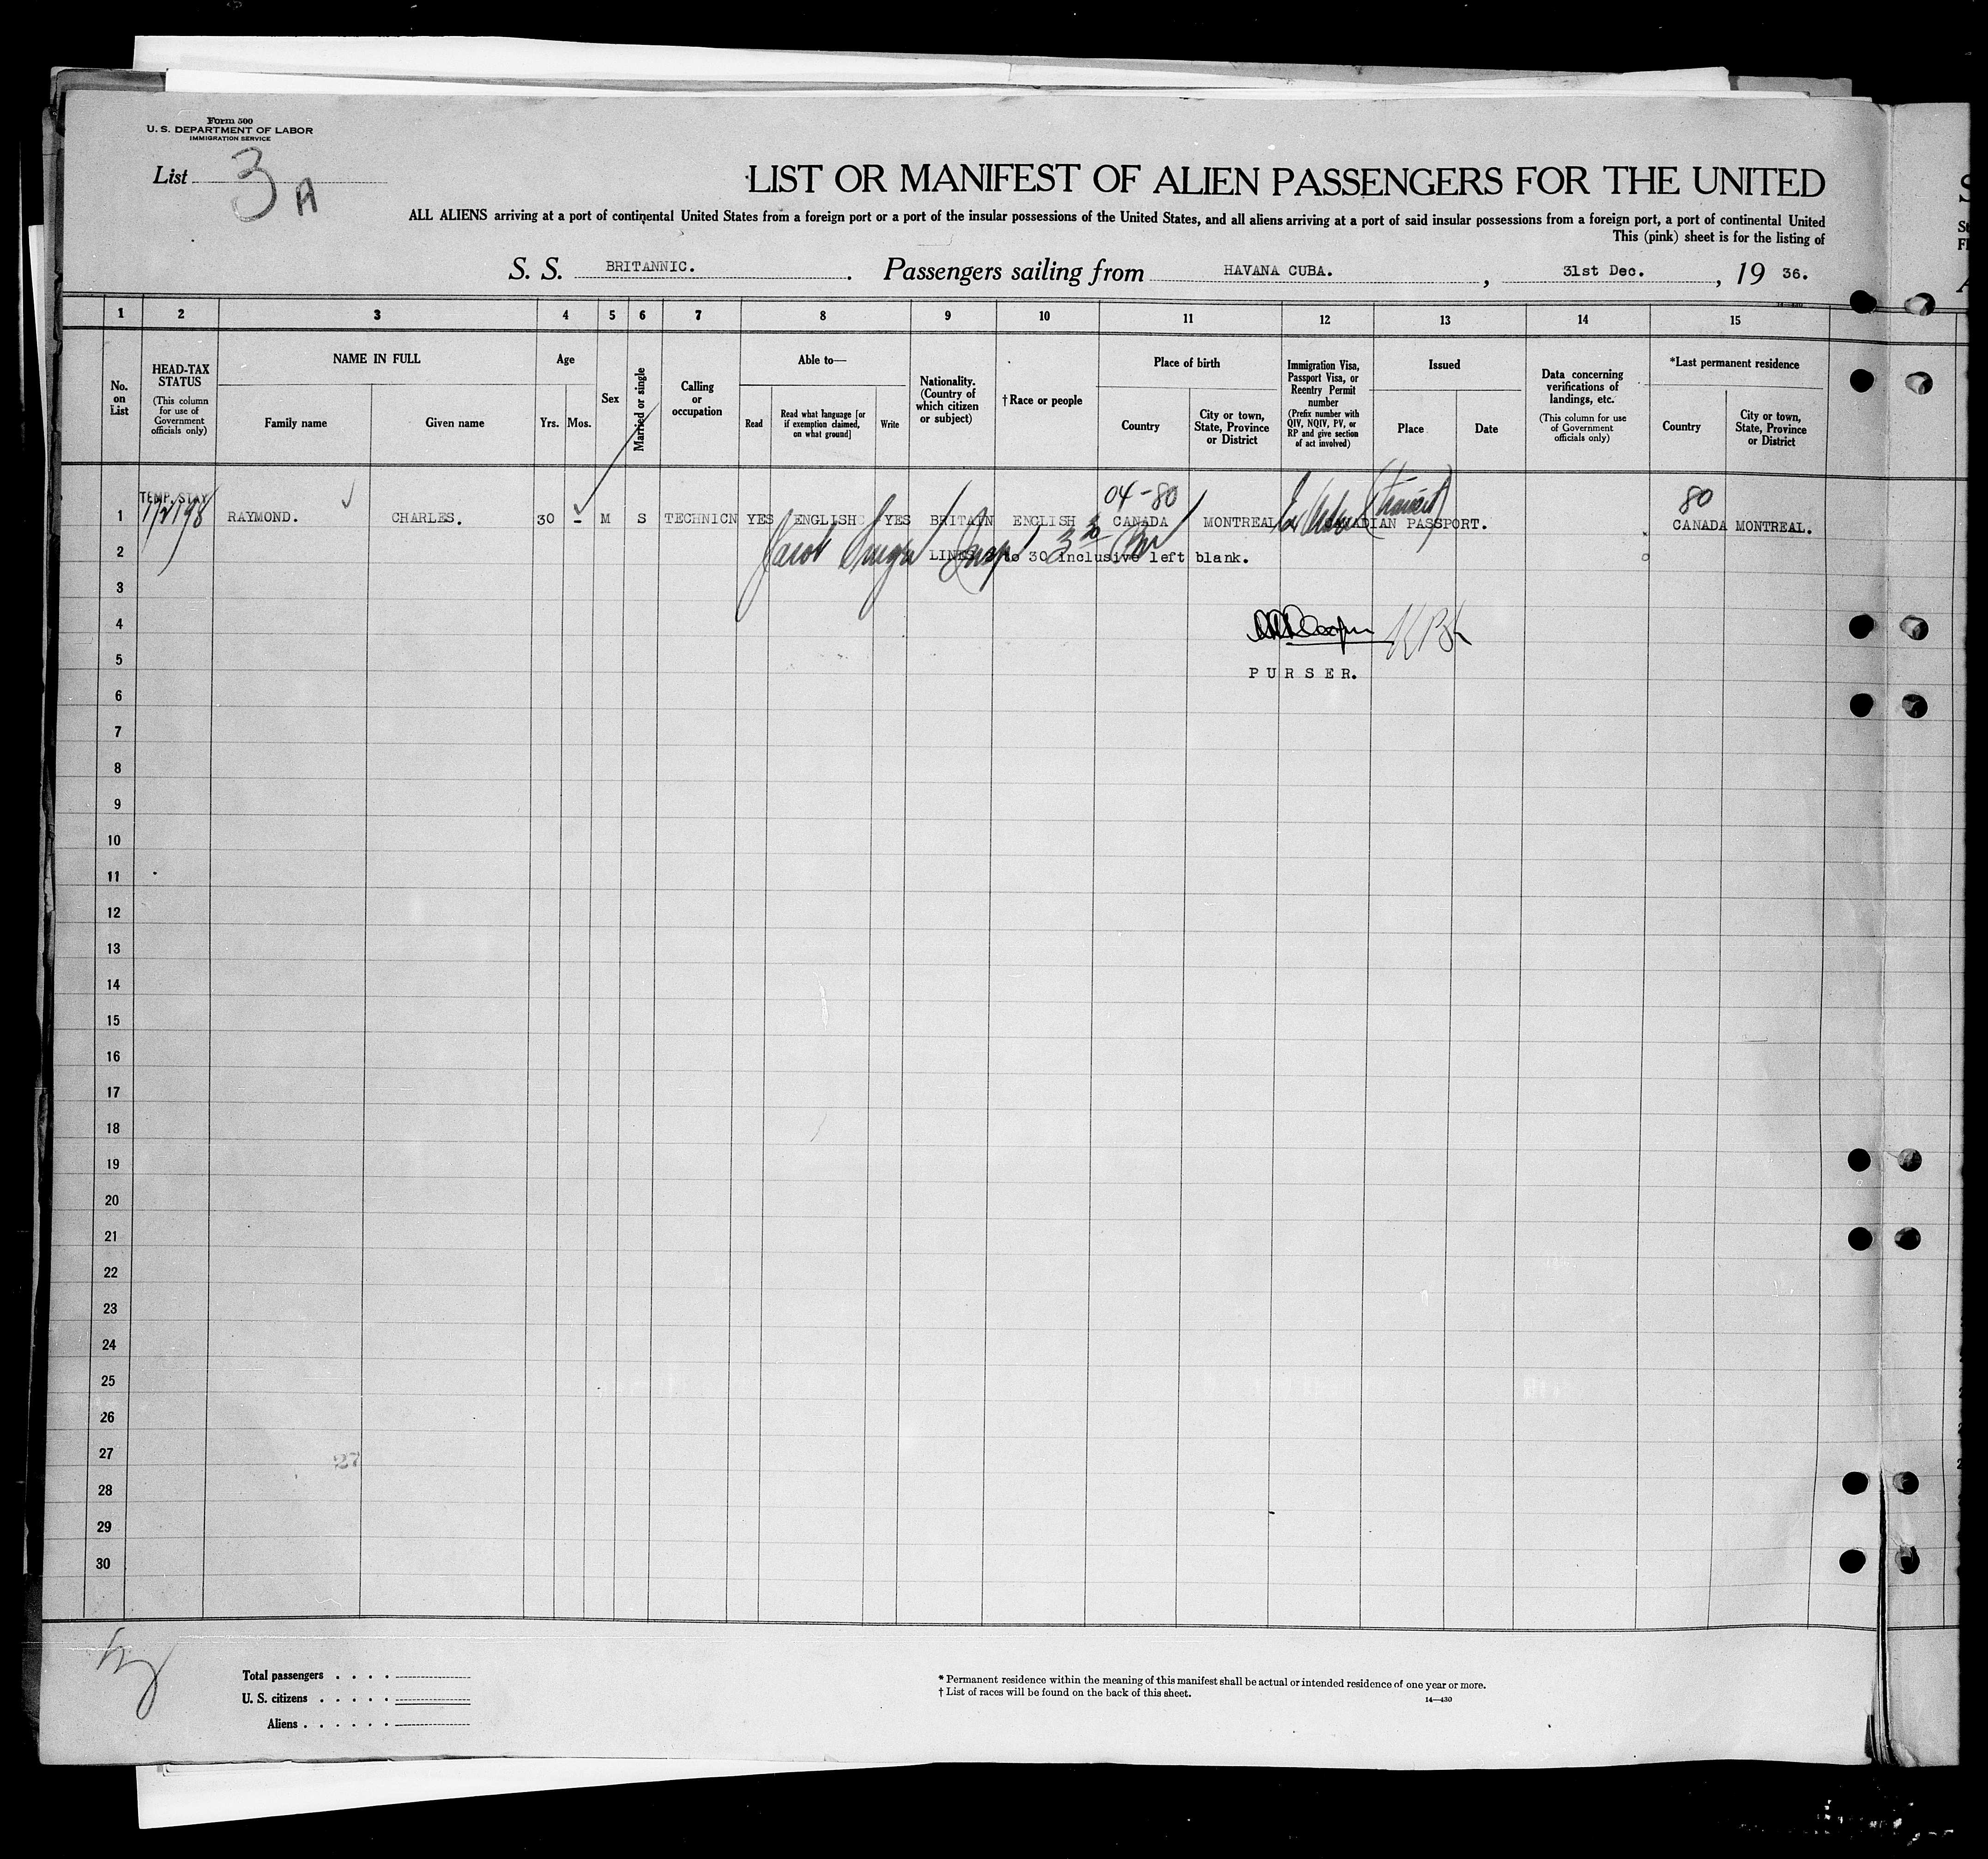 Form 500
U. S. DEPARTMENT OF LABOR
IMMIGRATION SERVICE
List 3 A
LIST OR MANIFEST OF ALIEN PASSENGERS FOR THE UNITED
ALL ALIENS arriving at a port of continental United States from a foreign port or a port of the insular possessions of the United States, and all aliens arriving at a port of said insular possessions from a foreign port, a port of continental United
This (pink) sheet is for the listing of
S. S. BRITANNIC. Passengers sailing from HAVANA CUBA. , 31st Dec. , 19 36.
1 2 3 4 5 6 7 8 9 10 11 12 13 14 15
No. on List
HEAD-TAX STATUS
(This column for use of Government officials only)
NAME IN FULL
Family name
Given name
Age
Yrs. Mos.
Sex
Married or single
Calling or occupation
Able to—
Read
Read what language [or if exemption claimed, on what ground]
Write
Nationality. (Country of which citizen or subject)
† Race or people
Place of birth
Country
City or town, State, Province or District
Immigration Visa, Passport Visa, or Reentry Permit number
(Prefix number with QIV, NQIV, PV, or RP and give section of act involved)
Issued
Place
Date
Data concerning verifications of landings, etc.
(This column for use of Government officials only)
*Last permanent residence
Country
City or town, State, Province or District
TEMP. STAY
04-80
80
1 RAYMOND. CHARLES. 30 - M S TECHNICN YES ENGLISH YES BRITAIN ENGLISH CANADA MONTREAL CANADIAN PASSPORT. CANADA MONTREAL.
2 LINES to 30 inclusive left blank.
3
4
5
PURSER.
6
7
8
9
10
11
12
13
14
15
16
17
18
19
20
21
22
23
24
25
26
27
27
28
29
30
Total passengers . . . .
U. S. citizens . . . . .
Aliens . . . . . .
* Permanent residence within the meaning of this manifest shall be actual or intended residence of one year or more.
† List of races will be found on the back of this sheet.
14—430